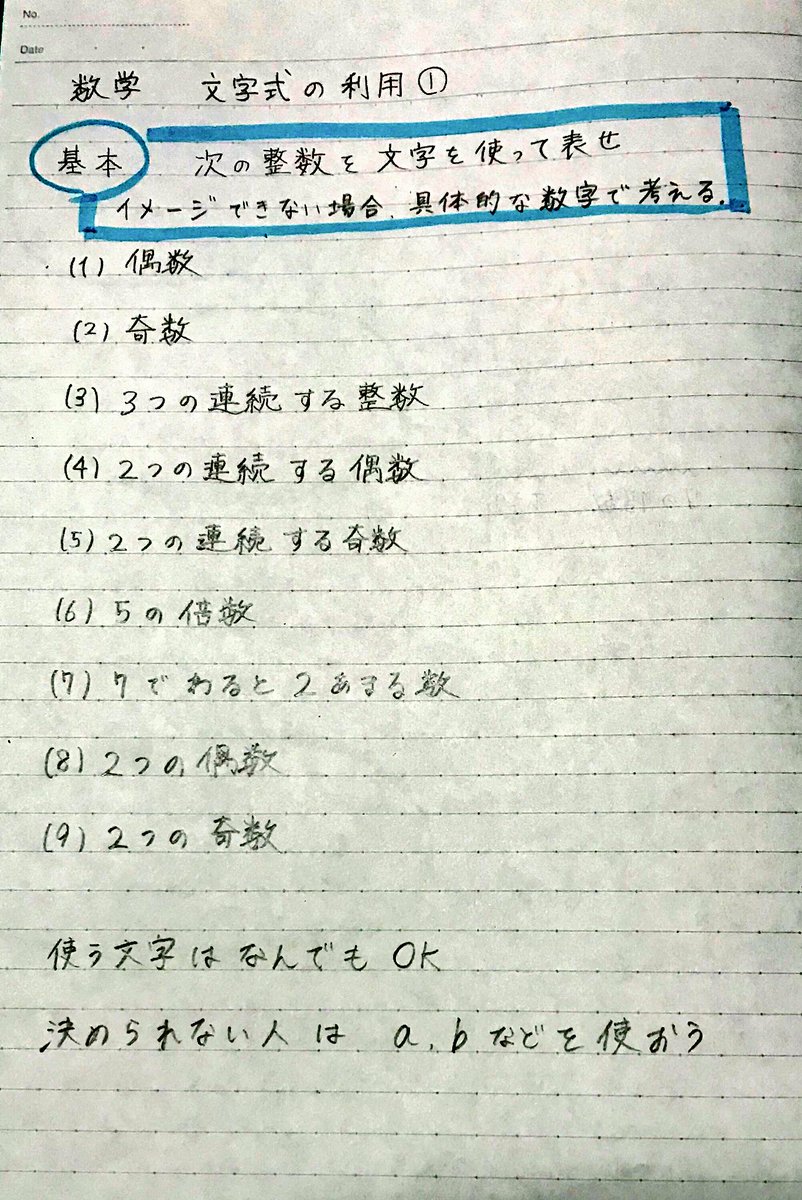 No.
Date
数学 文字式の利用①
基本 次の整数を文字を使って表せ
イメージできない場合、具体的な数字で考える.
(1) 偶数
(2) 奇数
(3) 3つの連続する整数
(4) 2つの連続する偶数
(5) 2つの連続する奇数
(6) 5の倍数
(7) 7でわると2あまる数
(8) 2つの偶数
(9) 2つの奇数
使う文字はなんでもOK
決められない人は a, b などを使おう